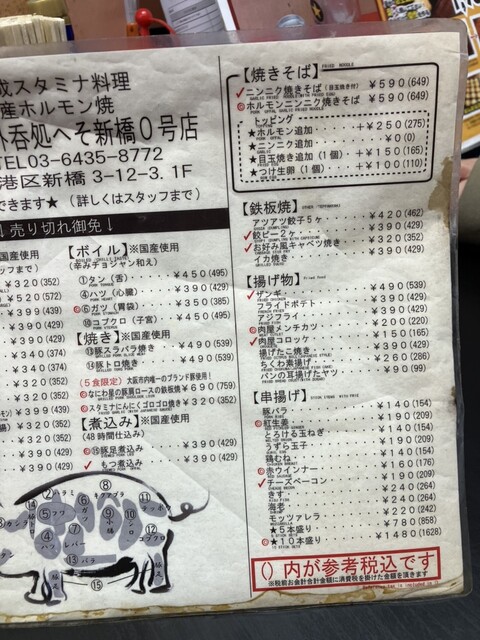 成スタミナ料理
産ホルモン焼
外呑処へそ新橋0号店
TEL03-6435-8772
港区新橋 3-12-3. 1F
できます★ (詳しくはスタッフまで)
↓売り切れ御免↓
国産使用
タッフまで)
¥320(352)
¥520(572)
¥390(429)
¥390(429)
¥340(374)
¥340(374)
¥320(352)
¥320(352)
¥399(439)
¥390(429)
¥320(352)
¥320(352)
¥390(429)
【ボイル】※国産使用
(辛みチョジャン和え)
①タン(舌)・・・・・¥450(495)
④ハツ(心臓)・・・・¥390(429)
⑥ガツ(胃袋)・・・・¥350(385)
⑩コブクロ(子宮)・・¥450(495)
【焼き】※国産使用
⑬豚スラバラ焼き・・・¥490(539)
⑭豚トロ焼き・・・・・¥490(539)
(5食限定) 大阪市内唯一のブランド豚使用!
なにわ星の豚肩ロースの鉄板焼 ¥690(759)
スタミナにんにくゴロゴロ焼き ¥320(352)
【煮込み】※国産使用
(48時間仕込み)
⑮豚足煮込み・・・・・¥390(429)
もつ煮込み・・・・・¥390(429)
【焼きそば】 FRIED NOODLE
ニンニク焼きそば(目玉焼き付) ¥590(649)
ホルモンニンニク焼きそば ¥590(649)
トッピング
★ホルモン追加・・・・+¥250(275)
★ニンニク追加・・・・・・¥0(0)
★目玉焼き追加(1個)・+¥150(165)
★つけ生卵(1個)・・・+¥100(110)
【鉄板焼】
アツアツ餃子5ヶ・・・・¥420(462)
餃ピー2ヶ・・・・・・・¥390(429)
お好み風キャベツ焼き・・¥390(429)
イカ焼き・・・・・・・・¥390(429)
【揚げ物】
ザンギ・・・・・・・・・¥490(539)
フライドポテト・・・・・¥390(429)
アジフライ・・・・・・・¥390(429)
肉屋メンチカツ・・・・・¥200(220)
肉屋コロッケ・・・・・・¥150(165)
揚げたこ焼き・・・・・・¥390(429)
ちくわ素揚げ・・・・・・¥260(286)
パンの耳揚げたヤツ・・・¥90(99)
【串揚げ】
豚バラ・・・・・・・・・¥140(154)
紅生姜・・・・・・・・・¥190(209)
とろける玉ねぎ・・・・・¥140(154)
うずら玉子・・・・・・・¥190(209)
鶏むね・・・・・・・・・¥140(154)
赤ウインナー・・・・・・¥160(176)
チーズベーコン・・・・・¥190(209)
きす・・・・・・・・・・¥240(264)
海老・・・・・・・・・・¥220(242)
モッツァレラ・・・・・・¥240(264)
★5本盛り・・・・・・・¥780(858)
★10本盛り・・・・・・¥1480(1628)
()内が参考税込です
※税前お会計合計金額に消費税を掛けた金額を頂きます